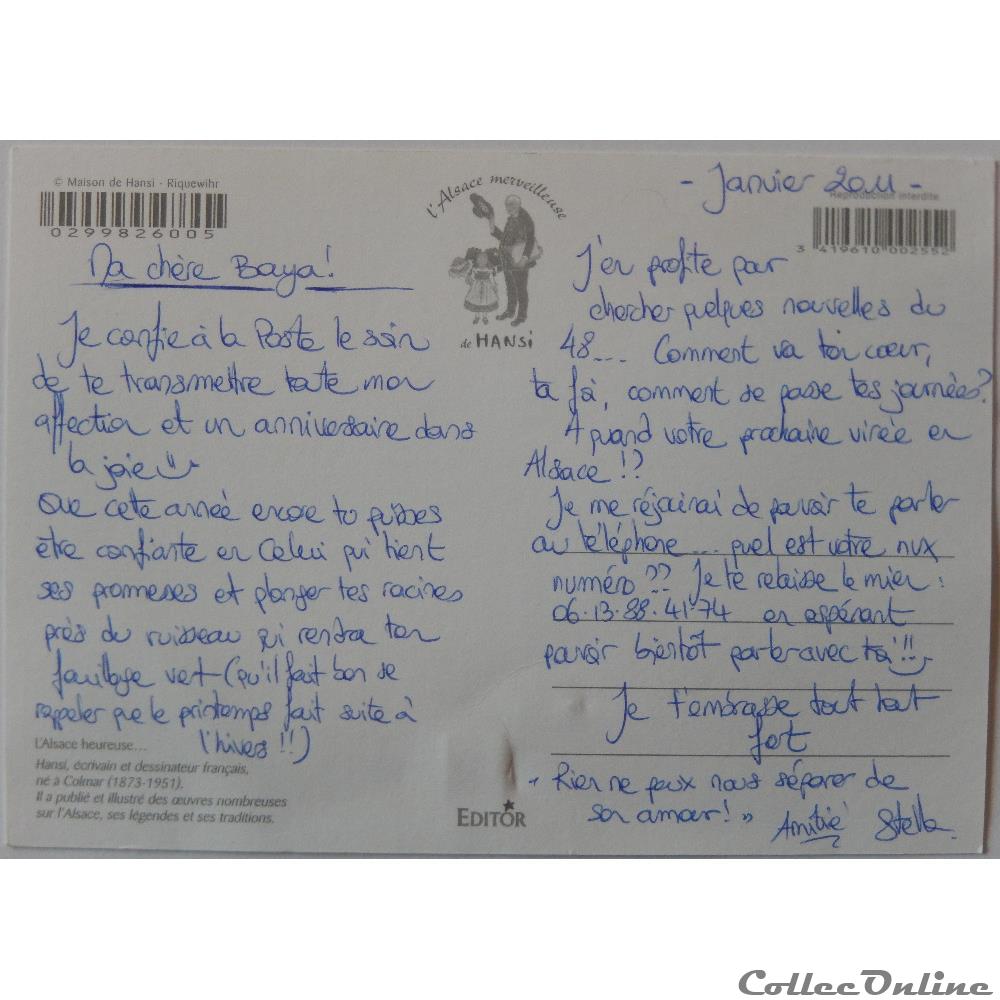 © Maison de Hansi - Riquewihr
0299826005
l'Alsace merveilleuse
de HANSi
- Janvier 2011 -
Reproduction interdite
3 419610 002552
Ma chère Baya!
Je confie à la Poste le soin
de te transmettre toute mon
affection et un anniversaire dans
la joie
Que cette année encore tu puisses
être confiante en Celui qui tient
ses promesses et plonger tes racines
près du ruisseau qui rendra ton
feuillage vert (qu'il fait bon se
rappeler que le printemps fait suite à
l'hivers!!)
L'Alsace heureuse...
Hansi, écrivain et dessinateur français,
né à Colmar (1873-1951).
Il a publié et illustré des œuvres nombreuses
sur l'Alsace, ses légendes et ses traditions.
EDITOR
J'en profite pour
chercher quelques nouvelles du
48.... Comment va ton cœur,
ta foi, comment se passe tes journées?
A quand votre prochaine virée en
Alsace!?
Je me réjouirai de pouvoir te parler
au téléphone.... quel est votre nvx
numéro?? Je te relaisse le mien:
06.13.88.41.74 en espérant
pouvoir bientôt parler avec toi!!
Je t'embrasse tout tout
fort
"Rien ne peux nous séparer de
son amour!" Amitié Stella.
CollecOnline